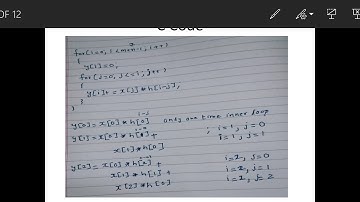 OF 12
C Code
for(i=0, i<m+n-1, i++)
{
y[i]=0,
for(j=0, j<=i; j++)
{
y[i]+ = x[j]*h[i-j];
}
}
y[0]=x[0]*h[0] only one time inner loop
y[1]=x[0]*h[1]+ ; i=1, j=0
x[1]*h[0] i=1, j=1
y[2]=x[0]*h[2]+ i=2, j=0
x[1]*h[1]+ i=2, j=1
x[2]*h[0] i=2, j=2